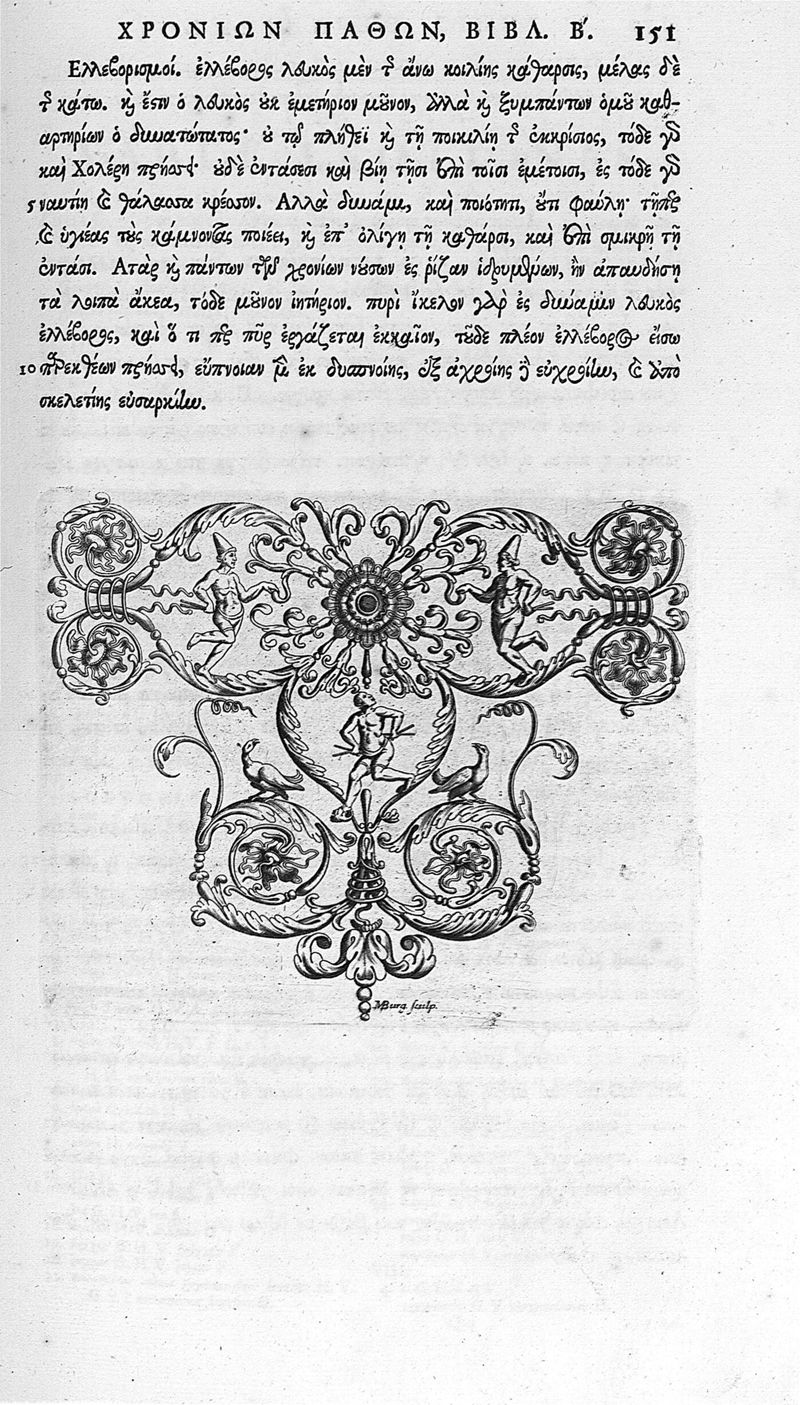 ΧΡΟΝΙΩΝ ΠΑΘΩΝ, ΒΙΒΛ. Β΄. 151
Ελλεβορισμοί. ἐλλέβορος λευκὸς μὲν τ̂ ἄνω κοιλίης κάθαρσις, μέλας δὲ
τ̂ κάτω. κὶ ἔστιν ὁ λευκὸς οὐκ ἐμετήριον μοῦνον, ἀλλὰ κὶ ξυμπάντων ὁμοῦ καθ-
αρτηρίων ὁ δυνατώτατος· οὐ τῷ πλήθεϊ κὶ τῇ ποικιλίῃ τ̂ ἐκκρίσιος, τόδε γὸ
καὶ Χολέρη πρήσσει· οὐδὲ ἐντάσεσι καὶ βίῃ τῇσι ἐπὶ τοῖσι ἐμέτοισι, ἐς τόδε γὸ
5 ναυτίη καὶ θάλασσα κρέσσον. Αλλὰ δυνάμι, καὶ ποιότητι, οὔτι φαύλῃ· τῇπερ
καὶ ὑγιέας τοὺς κάμνοντας ποιέει, κὶ ἐπ' ὀλίγῃ τῇ καθάρσι, καὶ ἐπὶ σμικρῇ τῇ
ἐντάσι. Ατὰρ κὶ πάντων τῶν χρονίων νούσων ἐς ῥίζαν ἱδρυμένων, ἢν ἀπαυδήσῃ
τὰ λοιπὰ ἄκεα, τόδε μοῦνον ἰητήριον. πυρὶ ἴκελον γὰρ ἐς δύναμιν λευκὸς
ἐλλέβορος, καὶ ὅ τι περ πῦρ ἐργάζεται ἐκκαῖον, τοῦδε πλέον ἐλλέβορος εἴσω
10 παρεκθέων πρήσσει, εὔπνοιαν μὲν ἐκ δυσπνοίης, ἐξ ἀχροίης δὲ εὐχροίην, καὶ ἀπὸ
σκελετίης εὐσαρκίην.
MBurg sculp.